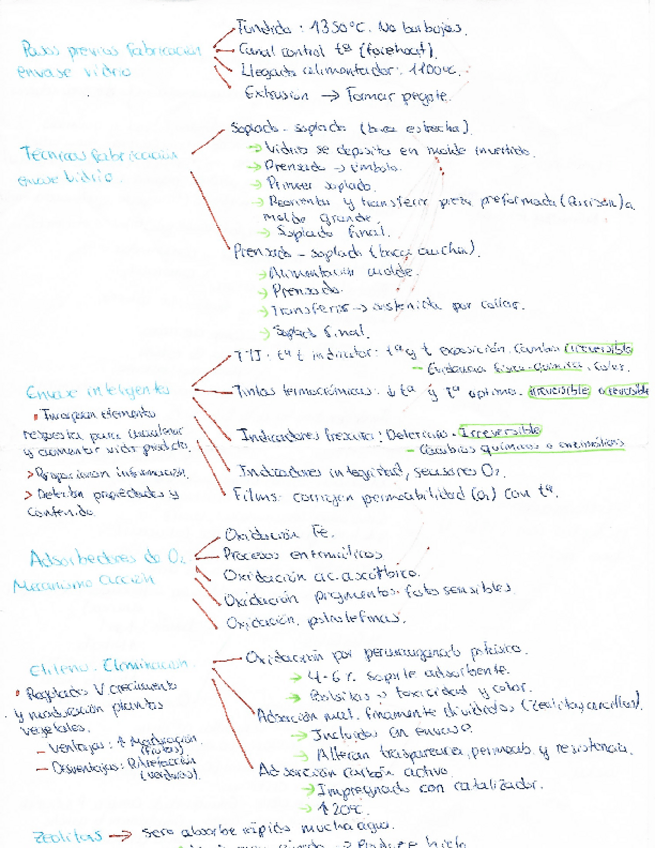 Pasos previos fabricación
envase vidrio
Fundido: 1350ºC. No burbujas.
Canal control tª (forehast).
Llegada alimentador: 1100ºC.
Extrusion → Formar pegote.
Técnicas fabricación
envase vidrio.
Soplado - soplado (boca estrecha).
→ Vidrio se deposita en molde invertido.
→ Prensado → émbolo.
→ Primer soplado.
→ Reorienta y transferir pieza preformada (parison) a
molde grande.
→ Soplado final.
Prensado - soplado (boca ancha).
→ Alimentación molde.
→ Prensado.
→ Transferir → sostenida por collar.
→ Soplado final.
Envase inteligente
• Incorporan elemento
respuesta para
y aumentar vida producto.
> Proporcionan información.
> Detectan propiedades y
contenido.
TTI: tª t indicator: tª y t exposición. Cambio irreversible
- Evidencia físico-química, color.
Tintas termocrómicas: ↓ tª y tª optima. irreversible o reversible
Indicadores frescura: Deterioro. Irreversible
- Cambios químicos o enzimáticos
Indicadores integridad, sensores O₂.
Films: corrigen permeabilidad (O₂) con tª.
Adsorbedores de O₂
Mecanismo acción
Oxidación Fe.
Procesos enzimáticos
Oxidación ac. ascórbico.
Oxidación pigmentos fotosensibles.
Oxidación poliolefinas.
Etileno. Eliminación.
• Regulador V crecimiento
y maduración plantas
vegetales.
- Ventajas: ↑ Maduración
(frutos)
- Desventajas: Putrefacción
(verduras).
Oxidación por permanganato potásico.
→ 4-6%. Soporte adsorbente.
→ Bolsitas → toxicidad y color.
Adsorción mat. finamente divididos (zeolitas, arcillas).
→ Incluidos en envase.
→ Alteran transparencia, permeab. y resistencia.
Adsorción carbón activo.
→ Impregnado con catalizador.
→ ↑ 20ºC.
Zeolitas → Sero absorbe rápido mucha agua.
→ Produce hielo